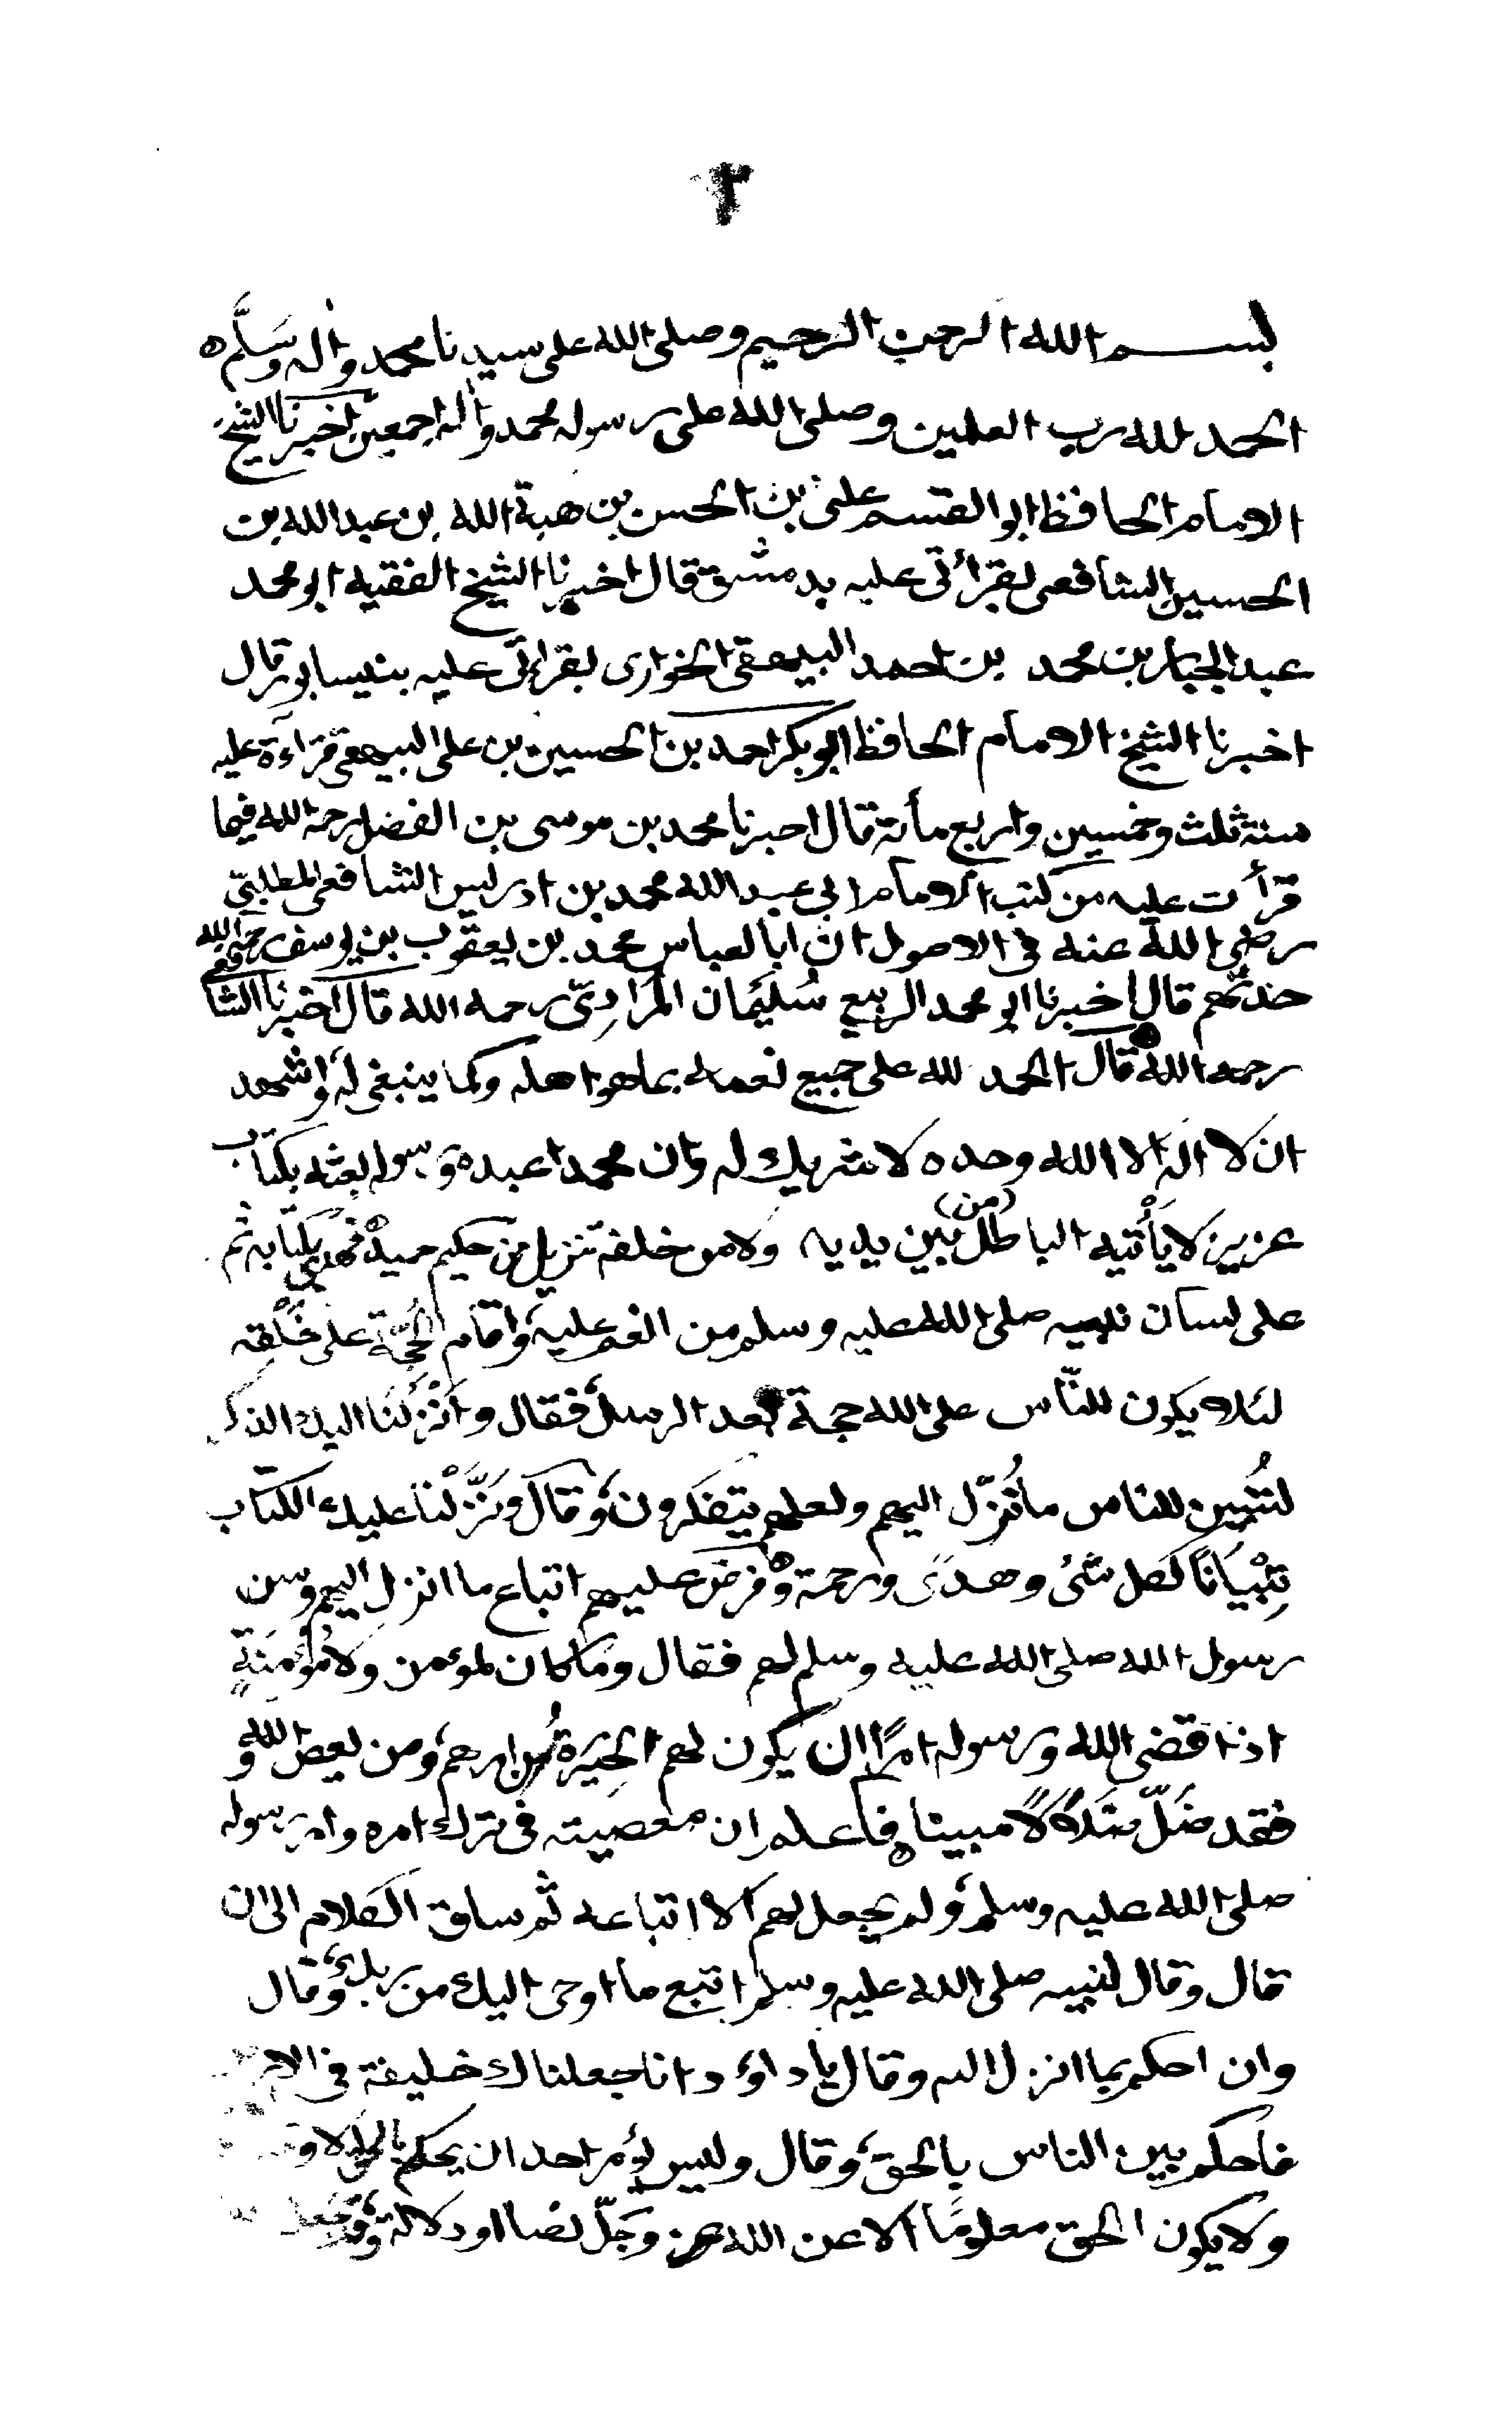 ٢
بسم الله الرحمن الرحيم وصلى الله على سيدنا محمد واله وسلم
الحمد لله رب العلمين وصلى الله على رسوله محمد واله اجمعين اخبرنا الشيخ
الامام الحافظ ابو القسم على بن الحسن بن هبة الله بن عبد الله بن
الحسين الشافعى بقرأتى عليه بدمشق قال اخبرنا الشيخ الفقيه ابو محمد
عبد الجبار بن محمد بن احمد البيهقى الخوارى بقرائتى عليه بنيسابور قال
اخبرنا الشيخ الامام الحافظ ابو بكر احمد بن الحسين بن على البيهقى قراءة عليه
سنة ثلث وخمسين واربع مائة قال اخبرنا محمد بن موسى بن الفضل رحمه الله فيما
قرأت عليه من كتب الامام ابى عبد الله محمد بن ادريس الشافعى المطلبى
رضى الله عنه فى الاصول ان ابا العباس محمد بن يعقوب بن يوسف رحمه الله
حدثهم قال اخبرنا ابو محمد الربيع سُليمَان المُرَادِىّ رحمه الله قال اخبرنا الشافعى
رحمه الله قال الحمد لله على جميع نعمائه بما هو اهله وكما ينبغى له واشهد
ان لا اله الا الله وحده لا شريك له وان محمدا عبده ورسوله بعثه بكتاب
عزيز لا يأتيه الباطل (من) بين يديه ولا من خلفه تنزيل من حكيم حميد فهدى بكتابه ثم
على لسان نبيه صلى الله عليه وسلم من انعم عليه واقام الحجّة على خَلْقِه
لئلا يكون للنّاس على الله حجة بعد الرسل فقال وَاَنْزَلْنَا اليك الذكر
لتُبين للناس ما نُزّل اليهم ولعلهم يتفكرون وقال ونَزَّلْنَا عليك الكتاب
تِبْيَانًا لكل شئ وهدًى ورحمة وفرض عليهم اتباع ما انزل اليهم وسن
رسول الله صلى الله عليه وسلم لهم فقال وما كان لمومن ولا مُؤمنَةٍ
اذا قضى الله ورسوله امرًا ان يكون لهم الخِيَرَةُ من امرهم ومن يعص الله و
فقد ضَلّ ضَلَالًا مبينا فاعلم ان معصيته فى ترك امره وامر رسوله
صلى الله عليه وسلم ولم يجعل لهم الا اتباعه ثم ساق الكلام الى ان
قال وقال لنبيه صلى الله عليه وسلم اتبع ما اوحى اليك من ربك وقال
وان احكم بما انزل الله وقال يا داؤد انا جعلناك خليفة فى
فاحكم بين الناس بالحق وقال وليس يؤمر احد ان يحكم بالحق الا
ولا يكون الحق معلومًا الا عن الله عز وجَلّ نصا او دلالة